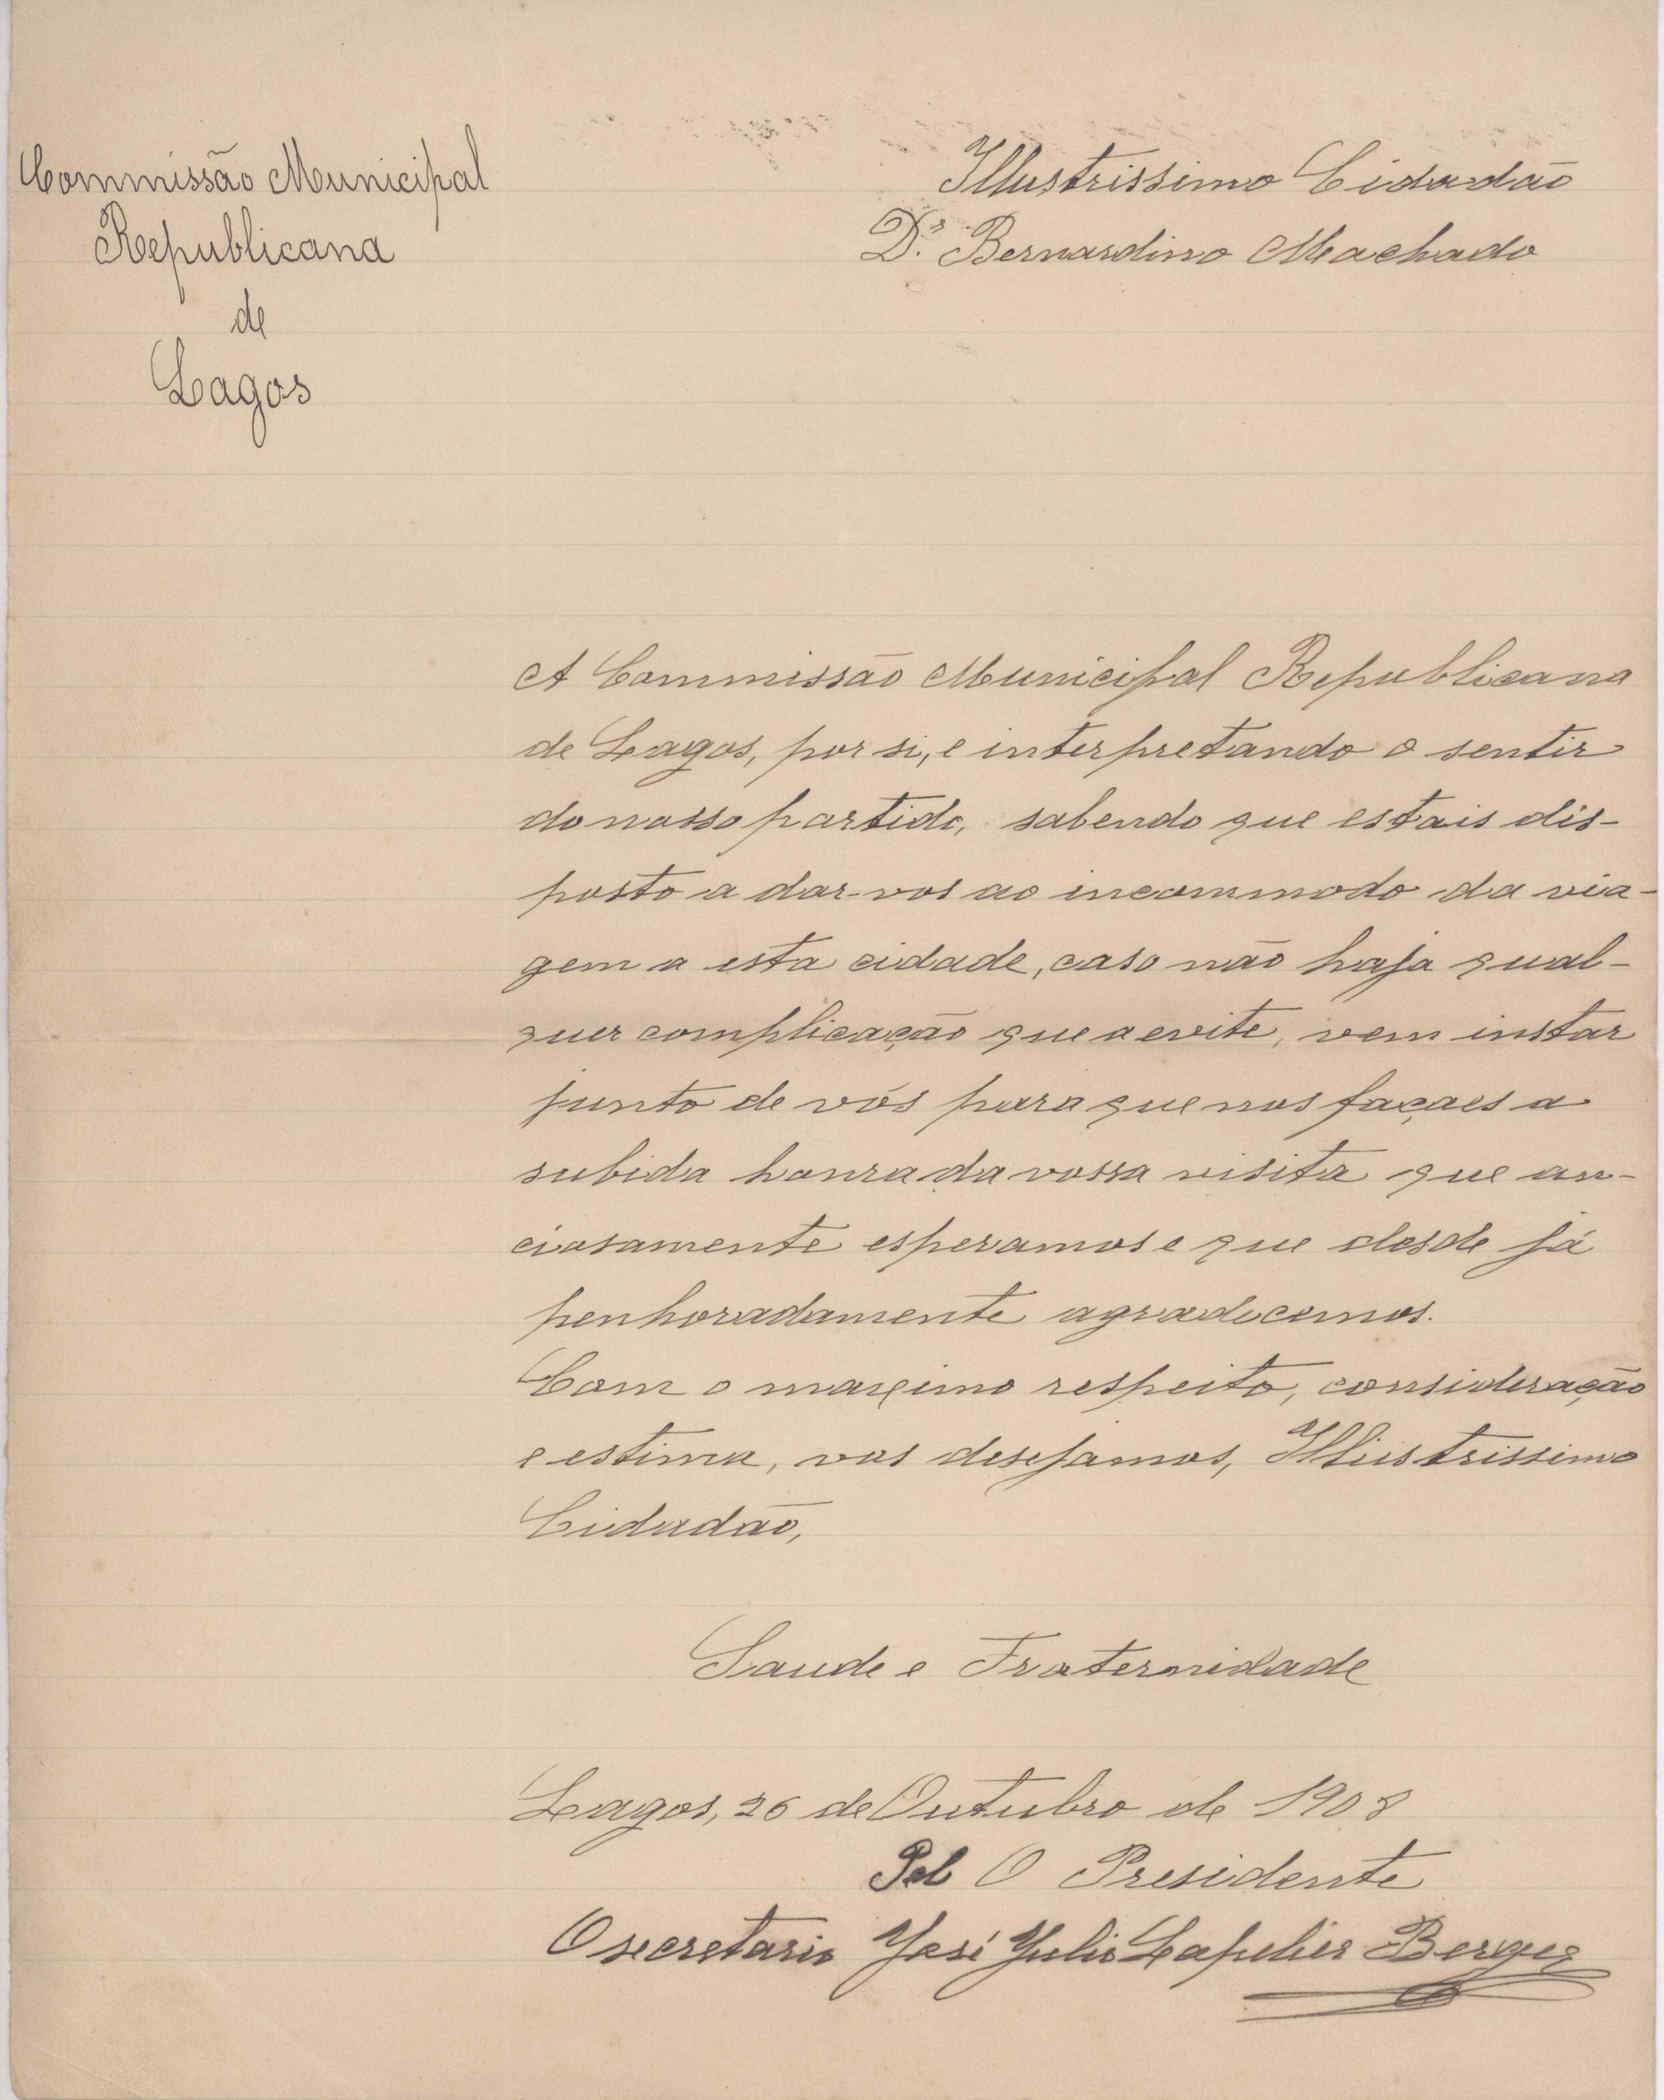 Commissão Municipal
Republicana
de
Lagos
Illustrissimo Cidadão
Dr. Bernardino Machado
A Commissão Municipal Republicana
de Lagos, por si, e interpretando o sentir
do nosso partido, sabendo que estais dis-
posto a dar-vos ao incommodo da via-
gem a esta cidade, caso não haja qual-
quer complicação que a evite, vem instar
junto de vós para que nos façaes a
subida honra da vossa visita que an-
ciosamente esperamos e que desde já
penhoradamente agradecemos.
Com o maximo respeito, consideração
e estima, vos desejamos, Illustrissimo
Cidadão,
Saude e Fraternidade
Lagos, 26 de Outubro de 1908
Pel O Presidente
O secretario José Julio Berger